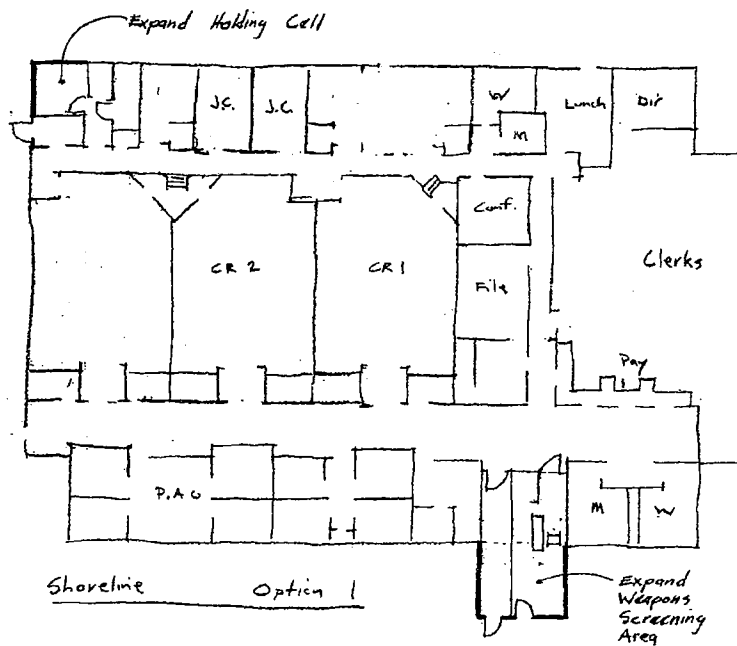 Expand Holding Cell
J.C.
J.C.
W
M
Lunch
Dir
Conf.
CR 2
CR 1
File
Clerks
Pay
P.A.O
M
W
Shoreline Option 1
Expand
Weapons
Screening
Area